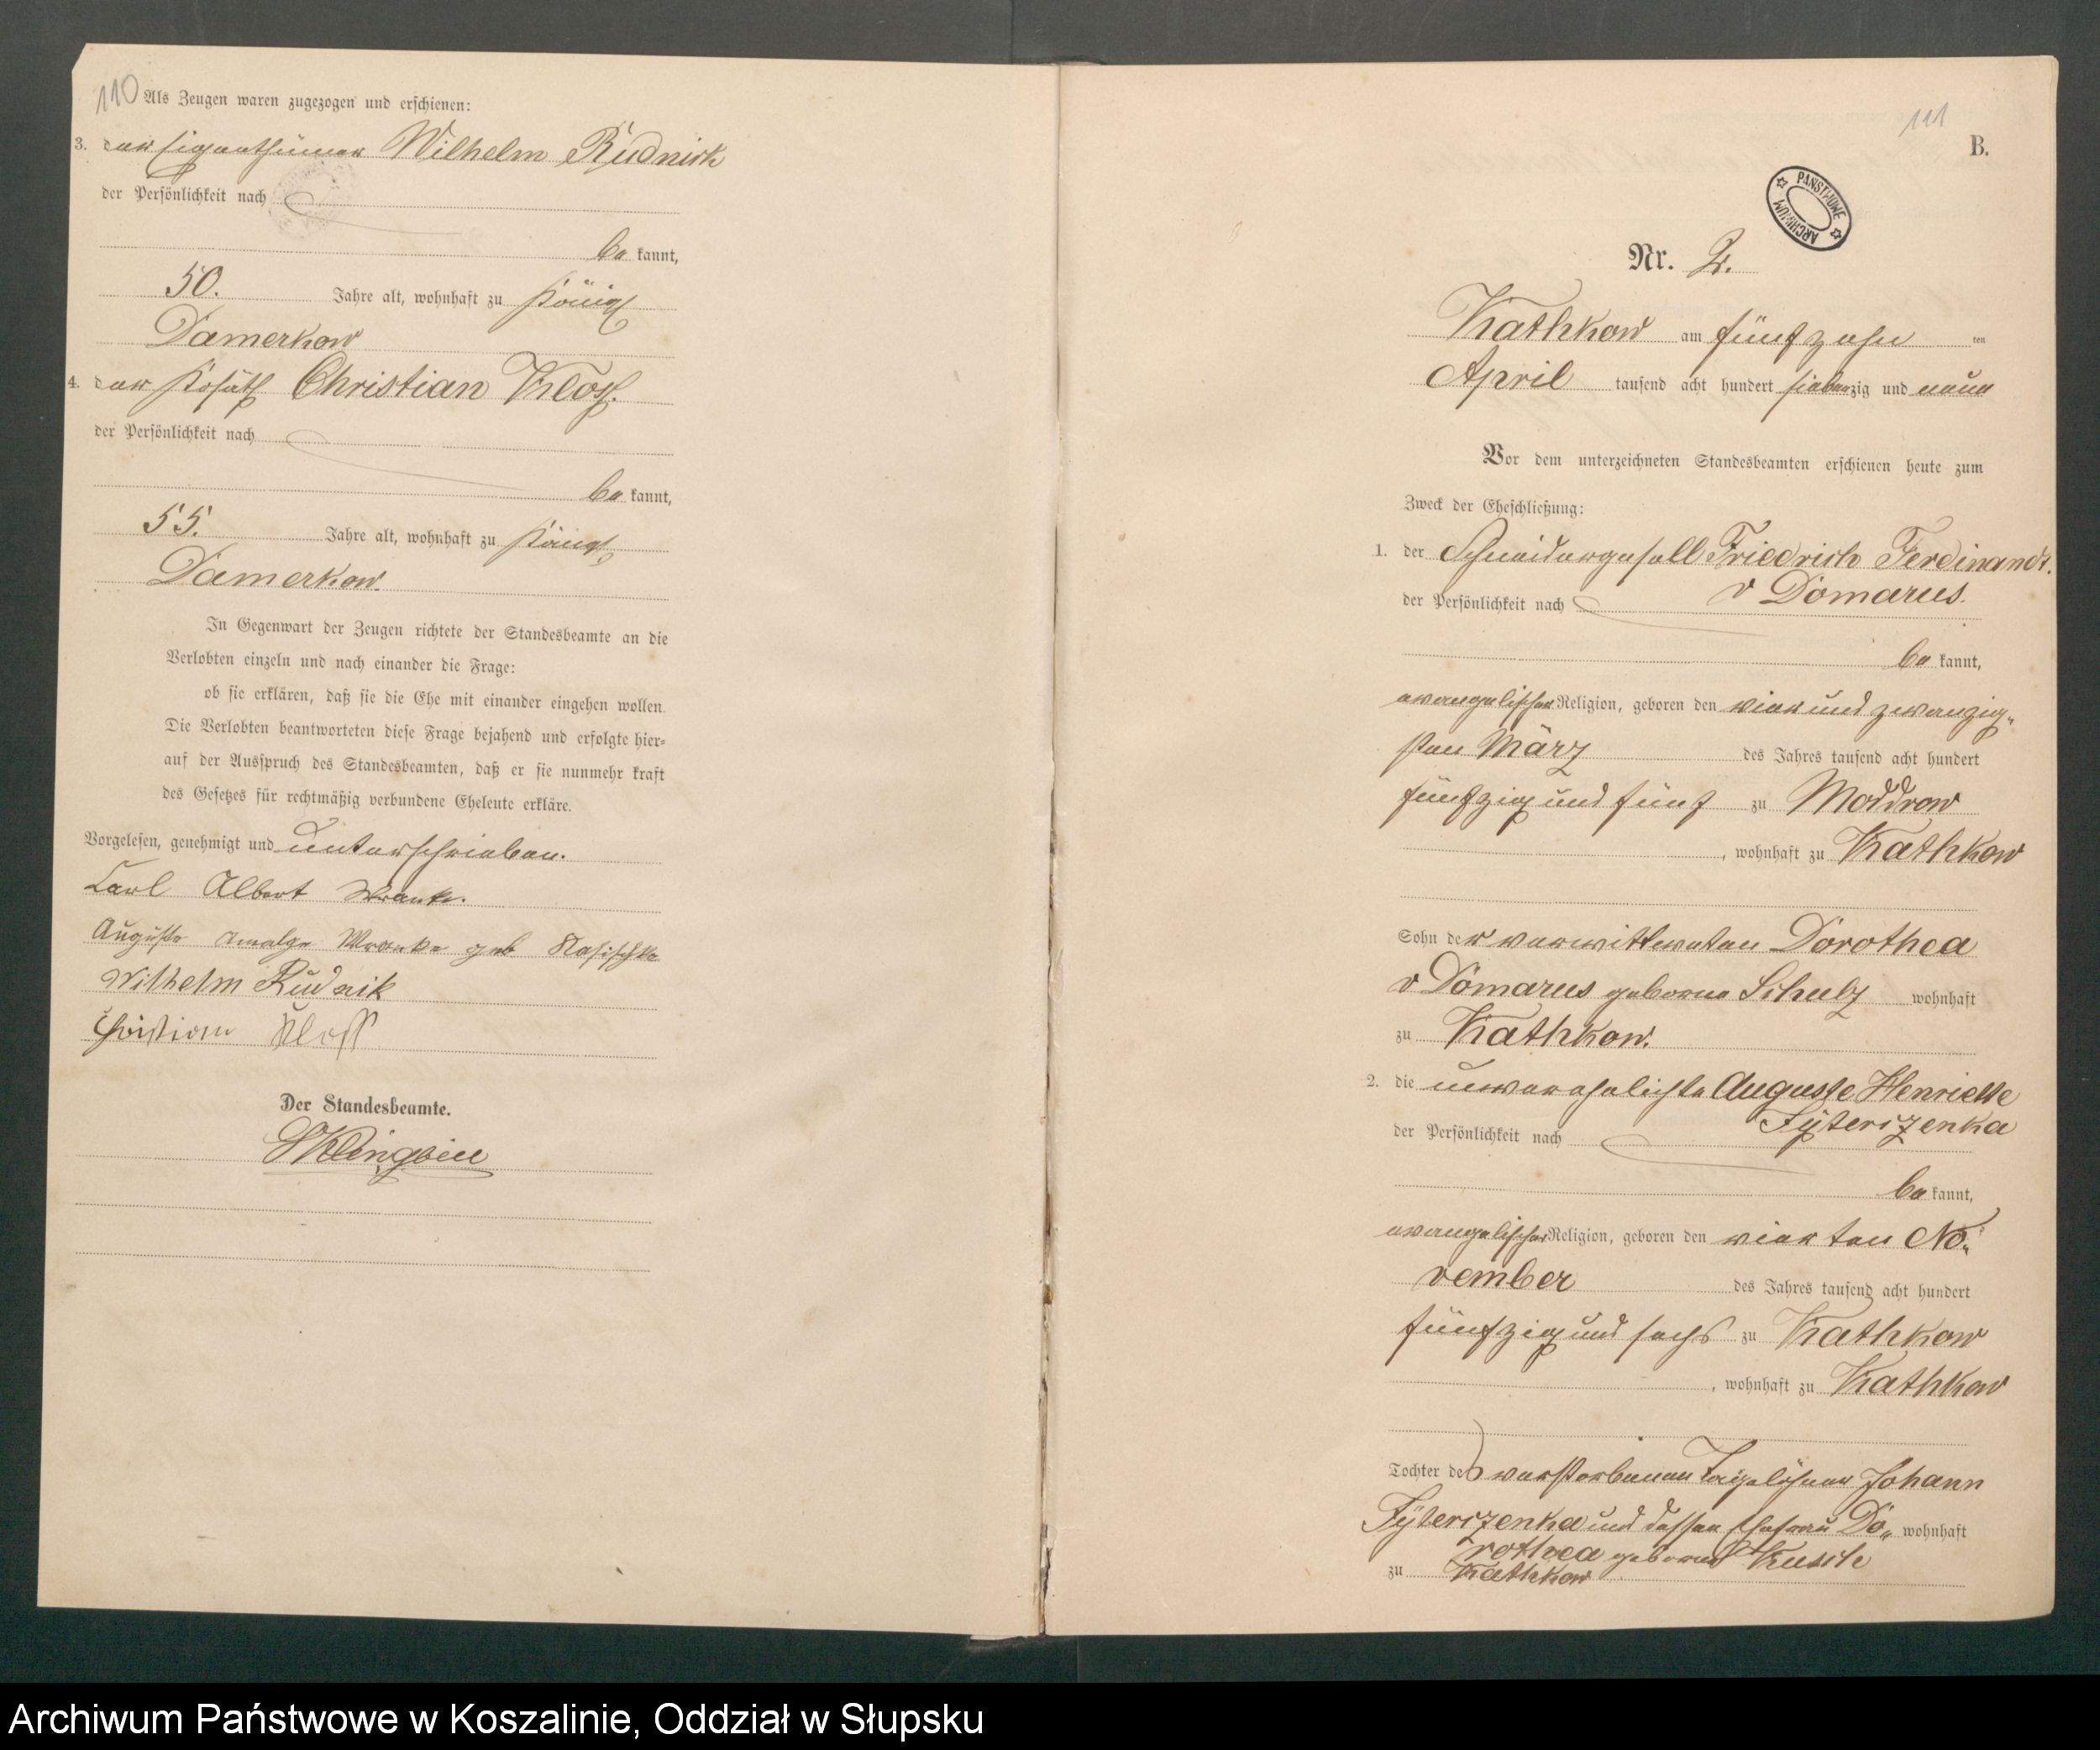 110 Als Zeugen waren zugezogen und erschienen:
3. der Eigenthümer Wilhelm Rudnick
der Persönlichkeit nach
be kannt,
50. Jahre alt, wohnhaft zu Königl
Damerkow
4. der Kossäth Christian Kloss.
der Persönlichkeit nach
be kannt,
55. Jahre alt, wohnhaft zu Königl
Damerkow.
In Gegenwart der Zeugen richtete der Standesbeamte an die
Verlobten einzeln und nach einander die Frage:
ob sie erklären, daß sie die Ehe mit einander eingehen wollen.
Die Verlobten beantworteten diese Frage bejahend und erfolgte hier-
auf der Ausspruch des Standesbeamten, daß er sie nunmehr kraft
des Gesetzes für rechtmäßig verbundene Eheleute erkläre.
Vorgelesen, genehmigt und unterschrieben.
Carl Albert
Auguste geb
Wilhelm Rudnik
Christian Kloss
Der Standesbeamte.
111
B.
PAŃSTWOWE ARCHIWUM
Nr. 2.
Kathkow am fünfzehn ten
April tausend acht hundert siebenzig und neun
Vor dem unterzeichneten Standesbeamten erschienen heute zum
Zweck der Eheschließung:
1. der Schneidergesell Friedrich Ferdinandt.
v Domarus.
der Persönlichkeit nach
be kannt,
evangelischer Religion, geboren den vier und zwanzig„
sten März des Jahres tausend acht hundert
fünfzig und fünf zu Moddrow
, wohnhaft zu Kathkow
Sohn der verwittweten Dorothea
v Domarus geborne Schulz wohnhaft
zu Kathkow.
2. die unverehelichte Auguste Henriette
Fyterszenka
der Persönlichkeit nach
be kannt,
evangelischer Religion, geboren den vierten No„
vember des Jahres tausend acht hundert
fünfzig und sechs zu Kathkow
, wohnhaft zu Kathkow
Tochter des verstorbenen Tagelöhner Johann
Fyterszenka und dessen Ehefrau Do„ wohnhaft
rothea geborne Kusch
zu Kathkow
Archiwum Państwowe w Koszalinie, Oddział w Słupsku